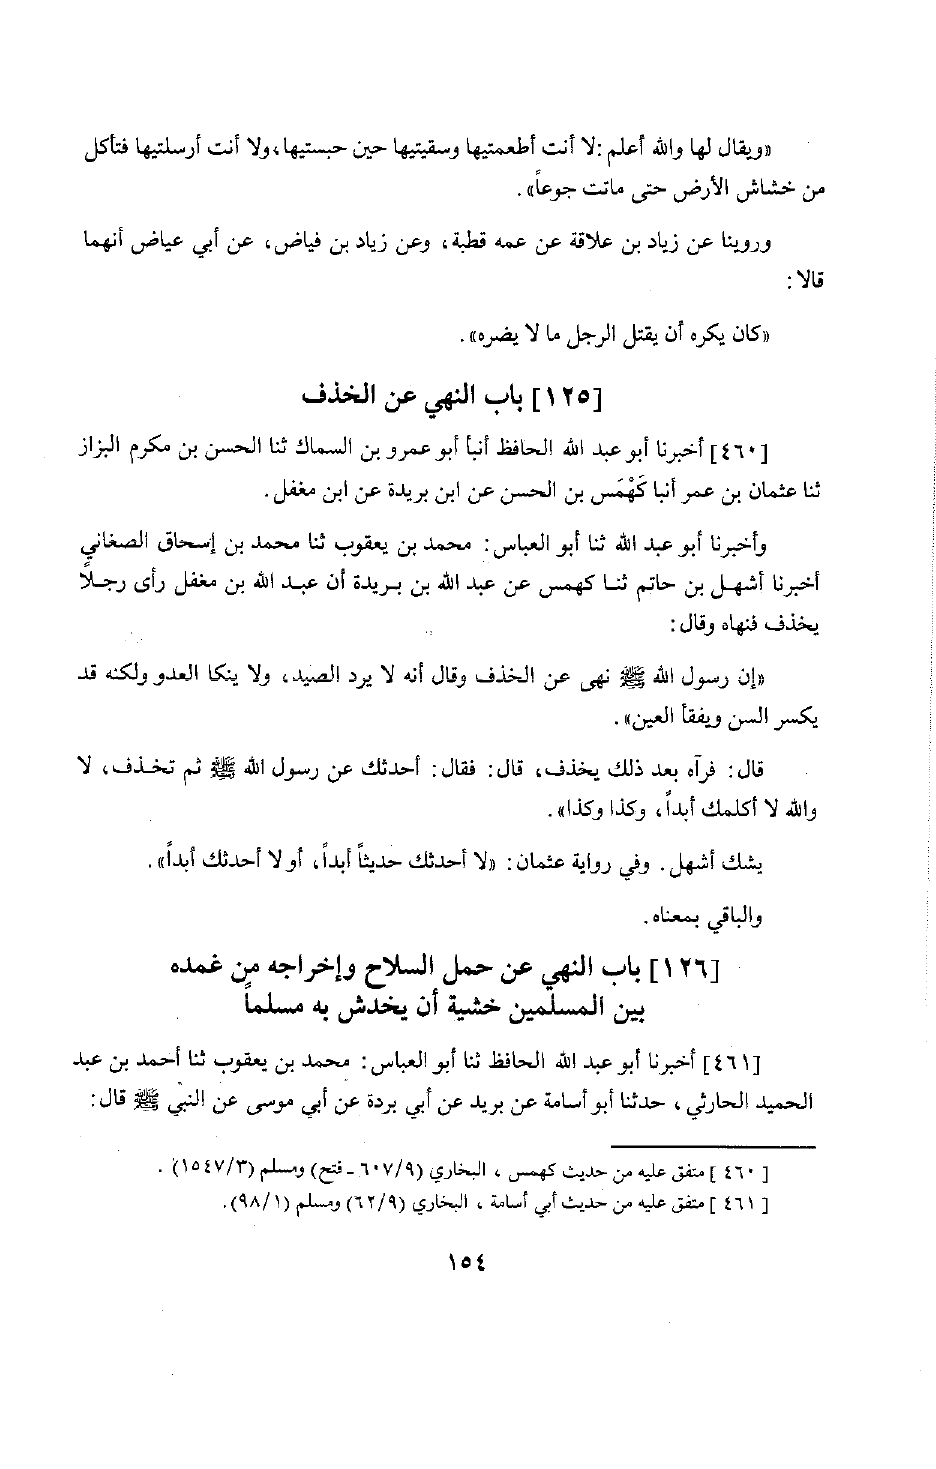 «ويقال لها والله أعلم :لا أنت أطعمتيها وسقيتيها حين حبستيها،ولا أنت أرسلتيها فتأكل
من خشاش الأرض حتى ماتت جوعاً» .
وروينا عن زياد بن علاقة عن عمه قطبة، وعن زياد بن فياض، عن أبي عياض أنهما
قالا:
«كان يكره أن يقتل الرجل ما لا يضره» .
[١٢٥] باب النهي عن الخذف
[٤٦٠] أخبرنا أبو عبد الله الحافظ أنبأ أبو عمرو بن السماك ثنا الحسن بن مكرم البزاز
ثنا عثمان بن عمر أنبا كَهْمَس بن الحسن عن ابن بريدة عن ابن مغفل.
وأخبرنا أبو عبد الله ثنا أبو العباس: محمد بن يعقوب ثنا محمد بن إسحاق الصغاني
أخبرنا أشهل بن حاتم ثنا كهمس عن عبد الله بن بريدة أن عبد الله بن مغفل رأى رجلاً
يخذف فنهاه وقال:
«إن رسول الله ﷺ نهى عن الخذف وقال أنه لا يرد الصيد، ولا ينكا العدو ولكنه قد
يكسر السن ويفقأ العين» .
قال: فرآه بعد ذلك يخذف، قال: فقال: أحدثك عن رسول الله ﷺ ثم تخذف، لا
والله لا أكلمك أبداً، وكذا وكذا» .
يشك أشهل. وفي رواية عثمان: «لا أحدثك حديثاً أبداً، أو لا أحدثك أبداً» .
والباقي بمعناه.
[١٢٦] باب النهي عن حمل السلاح وإخراجه من غمده
بين المسلمين خشية أن يخدش به مسلماً
[٤٦١] أخبرنا أبو عبد الله الحافظ ثنا أبو العباس: محمد بن يعقوب ثنا أحمد بن عبد
الحميد الحارثي ، حدثنا أبو أسامة عن بريد عن أبي بردة عن أبي موسى عن النبي ﷺ قال:
[ ٤٦٠ ] متفق عليه من حديث كهمس ، البخاري (٦٠٧/٩ - فتح) ومسلم (١٥٤٧/٣) .
[ ٤٦١ ] متفق عليه من حديث أبي أسامة ، البخاري (٦٢/٩) ومسلم (٩٨/١).
١٥٤